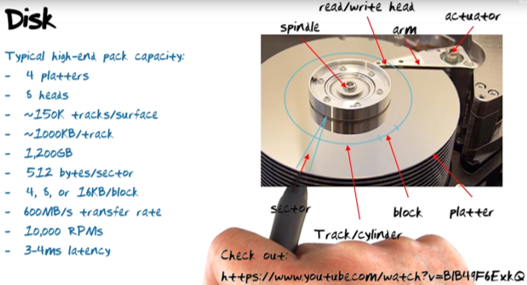 Disk
Typical high-end pack capacity:
- 4 platters
- 8 heads
- ~150K tracks/surface
- ~1000KB/track
- 1,200GB
- 512 bytes/sector
- 4, 8, or 16KB/block
- 600MB/s transfer rate
- 10,000 RPMs
- 3-4ms latency
read/write head
actuator
spindle
arm
sector
block
platter
Track/cylinder
Check out:
https://www.youtube.com/watch?v=BlB49F6ExkQ